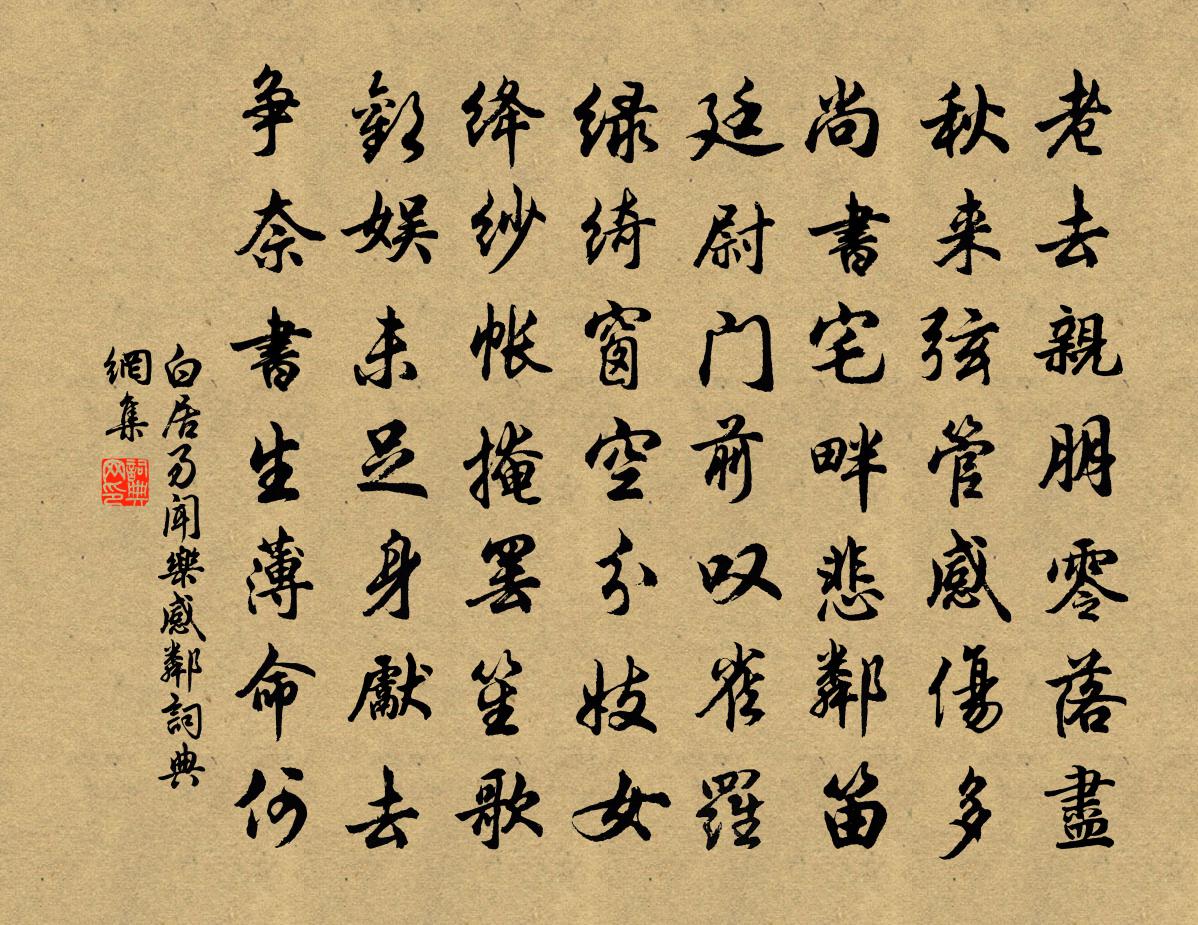 老去親朋零落盡
秋来弦管感傷多
尚書宅畔悲鄰笛
廷尉门前叹雀羅
绿绮窗空分妓女
绛纱帐掩罢笙歌
歡娱未足身獻去
争奈書生薄命何
白居易聞樂感鄰詞典
網集
詞典网印